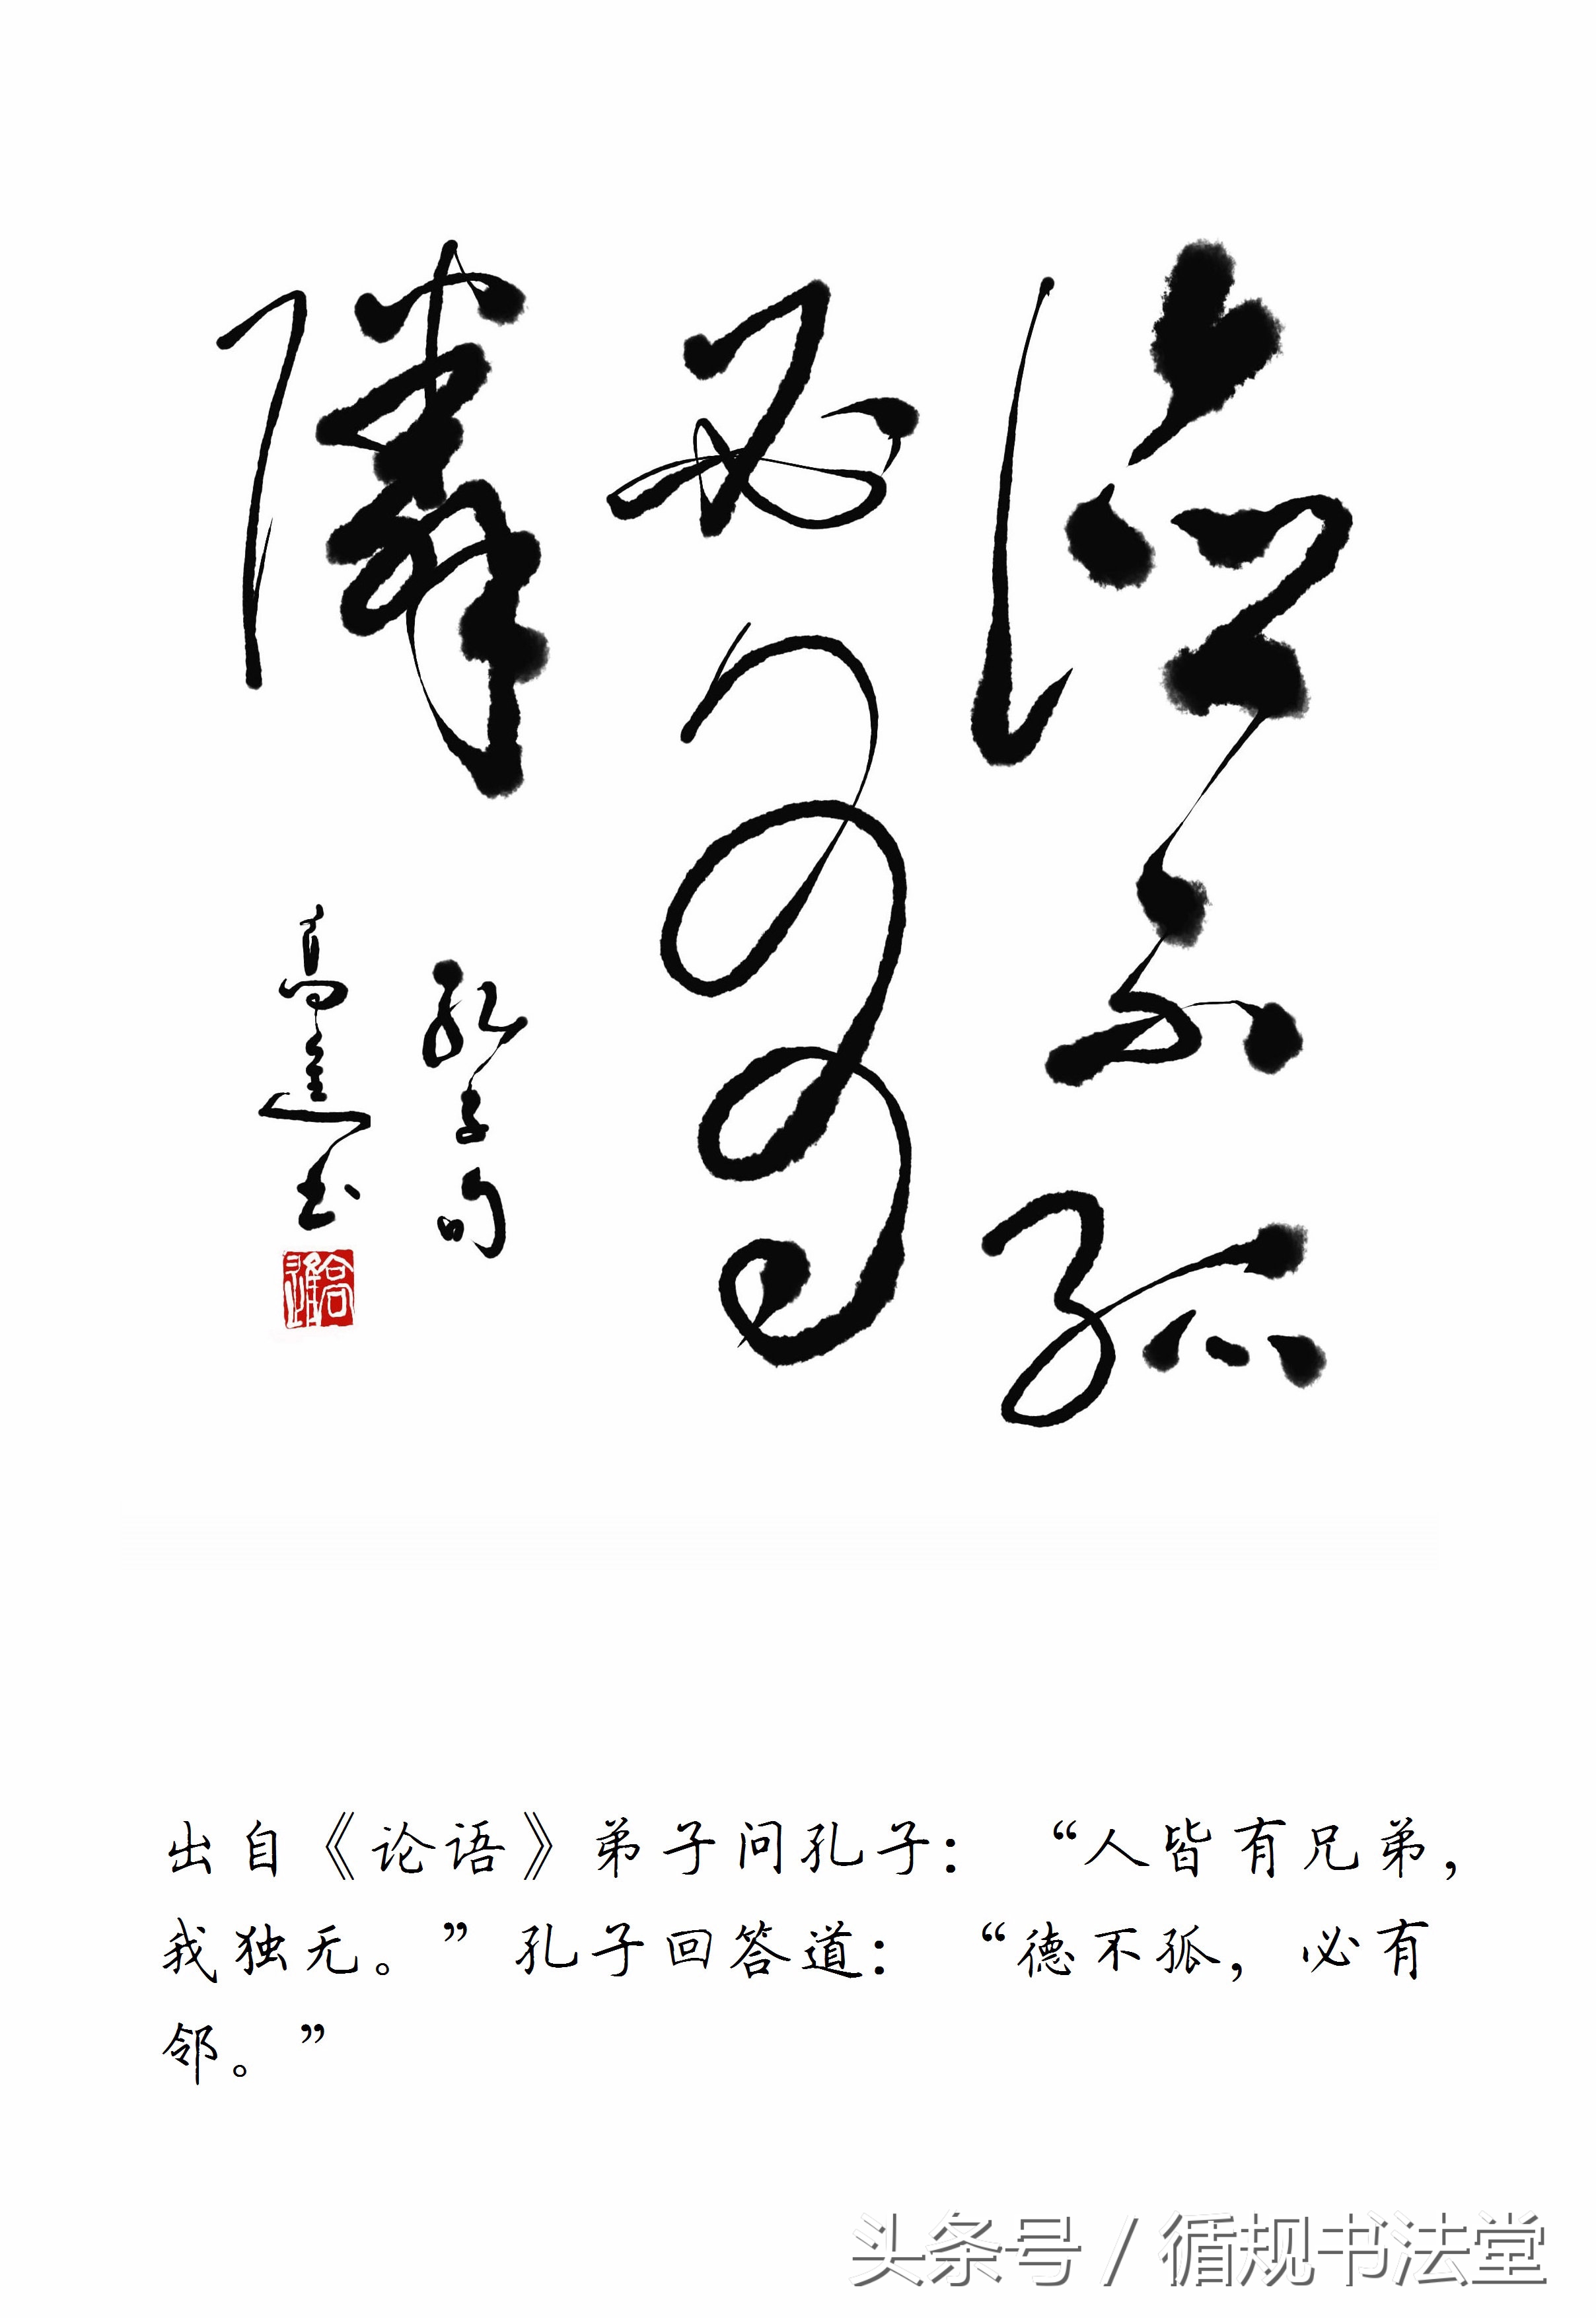 德不孤
必有
隣
孔子句
高進书
高進
出自《论语》弟子问孔子：“人皆有兄弟，
我独无。”孔子回答道：“德不孤，必有
邻。”
头条号 / 循规书法堂